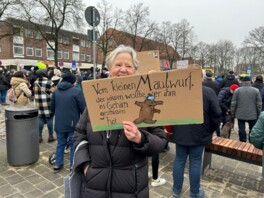 Vom kleinen Maulwurf,
der wissen wollte wer ihm
ins Gehirn
geschissen
hat